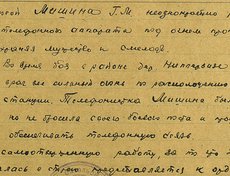 рой Мишина Г.М. неоднократно
телефонного аппарата под огнем
храняя мужество и смелость
Во время боя в районе дер.
враг вел сильный огонь по расположению
станции. Телефонистка Мишина была
но не бросила своего боевого поста и
обеспечивать телефонную связь.
самоотверженную работу, за то что
лась в строю представляется к орд